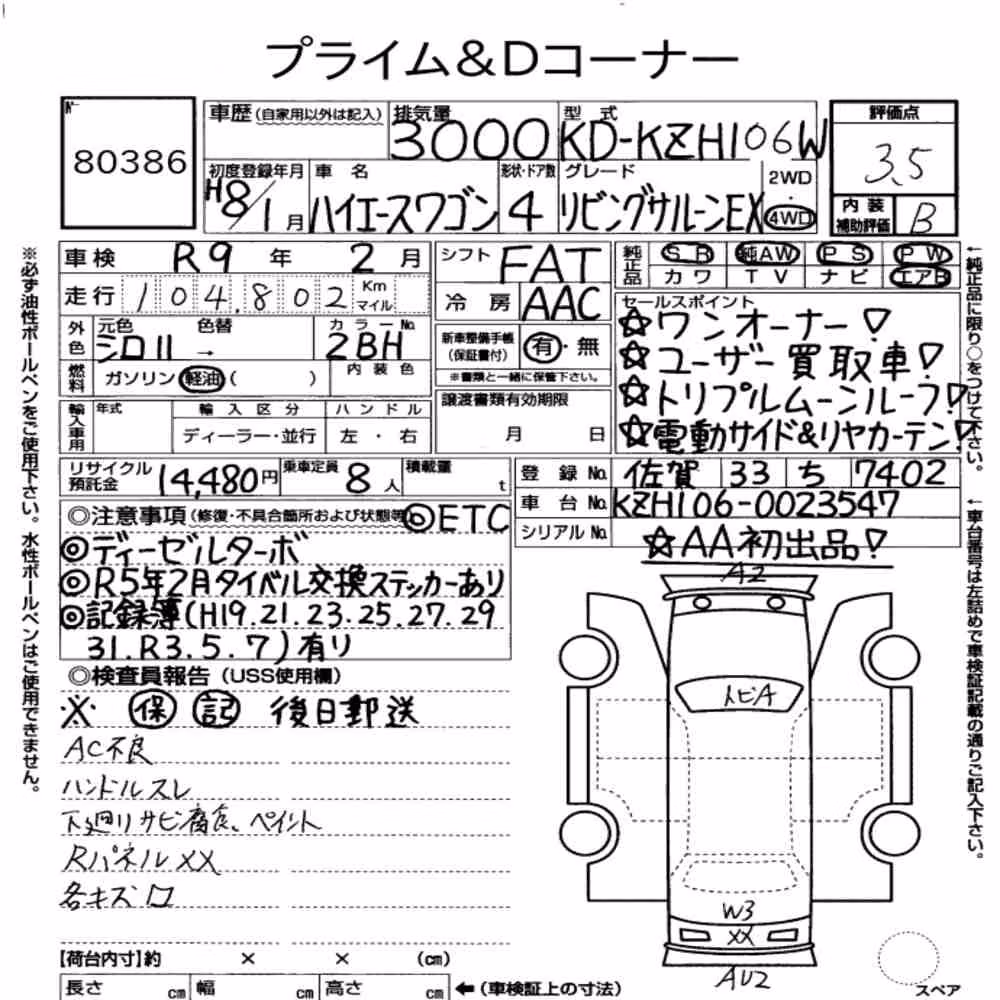 プライム&Dコーナー
№
80386
車歴(自家用以外は記入)
排気量
3000
型式
KD-KZH106W
評価点
3.5
初度登録年月
H8/1月
車名
ハイエースワゴン
形状・ドア数
4
グレード
リビングサルーンEX
2WD
4WD
内装
補助評価
B
車検 R9年 2月
走行 104,802 Km マイル
外色
元色 シロII
色替 →
カラーNo. 2BH
燃料 ガソリン 軽油( )
内装色
輸入車用
年式
輸入区分 ディーラー・並行
ハンドル 左・右
シフト FAT
冷房 AAC
新車整備手帳
(保証書付)
有・無
※書類と一緒に保管下さい。
譲渡書類有効期限
月 日
純正品
SR 純AW PS PW
カワ TV ナビ エアB
セールスポイント
☆ワンオーナー!
☆ユーザー買取車!
☆トリプルムーンルーフ!
☆電動サイド&リヤカーテン!
リサイクル
預託金
14,480円
乗車定員 8人
積載量 t
登録No. 佐賀 33 ち 7402
車台No. KZH106-0023547
シリアルNo.
☆AA初出品!
◎注意事項(修復・不具合箇所および状態等) ◎ETC
◎ディーゼルターボ
◎R5年2月タイベル交換ステッカーあり
◎記録簿(H19.21.23.25.27.29
31.R3.5.7)有り
◎検査員報告(USS使用欄)
※ 保 記 後日郵送
AC不良
ハンドルスレ
下廻りサビ腐食、ペイント
Rパネル XX
各キズ ロ
A2
トビA
W3
XX
AU2
スペア
【荷台内寸】約 × × (cm)
長さ cm 幅 cm 高さ cm ←(車検証上の寸法)
※必ず油性ボールペンをご使用下さい。水性ボールペンはご使用できません。
←純正品に限り○をつけて下さい。
←車台番号は左詰めで車検証記載の通りご記入下さい。